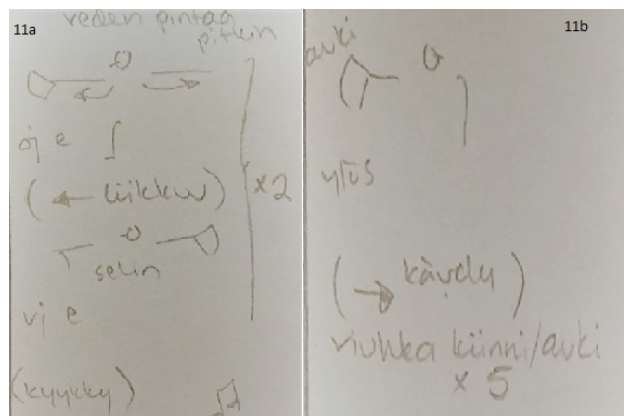 11a
reden pintaa
pitkin
oj e
(← liikkuu)
x2
selin
vj e
(kyykky)
11b
auki
ylös
(→ kävely)
viuhka kiinni/auki
x 5